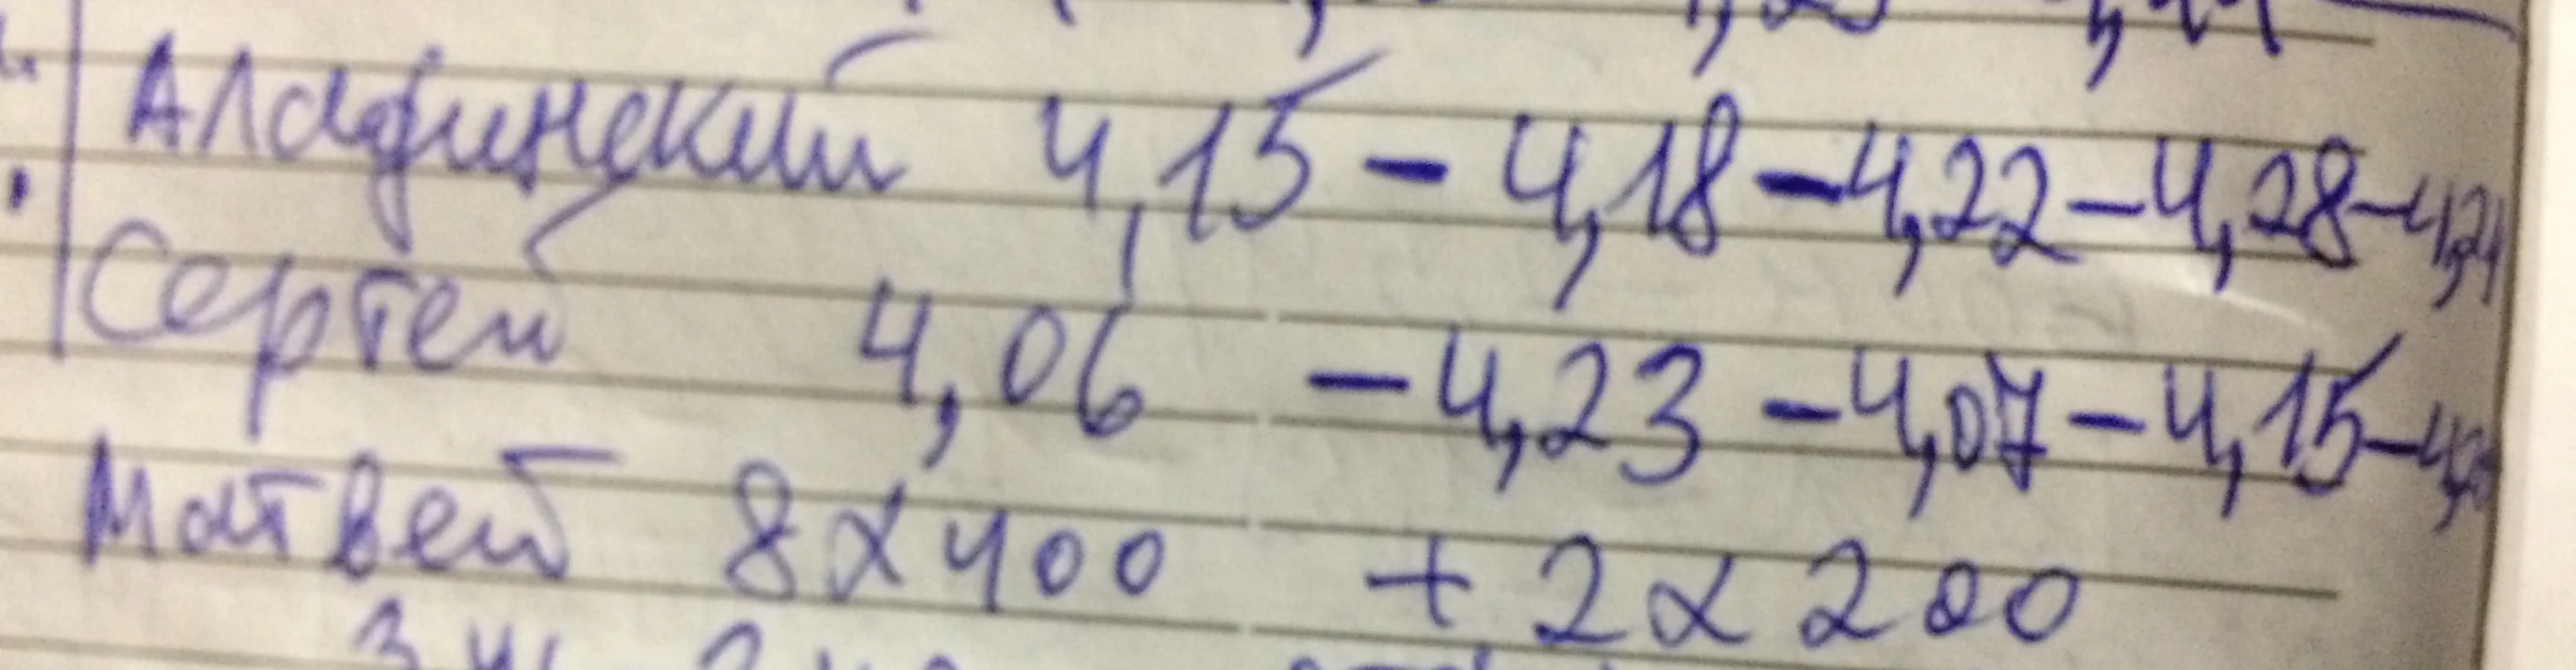 Алафинский 4,15 - 4,18 - 4,22 - 4,28 - 4,24
Сергей 4,06 - 4,23 - 4,07 - 4,15 -
Матвей 8х400 + 2х200